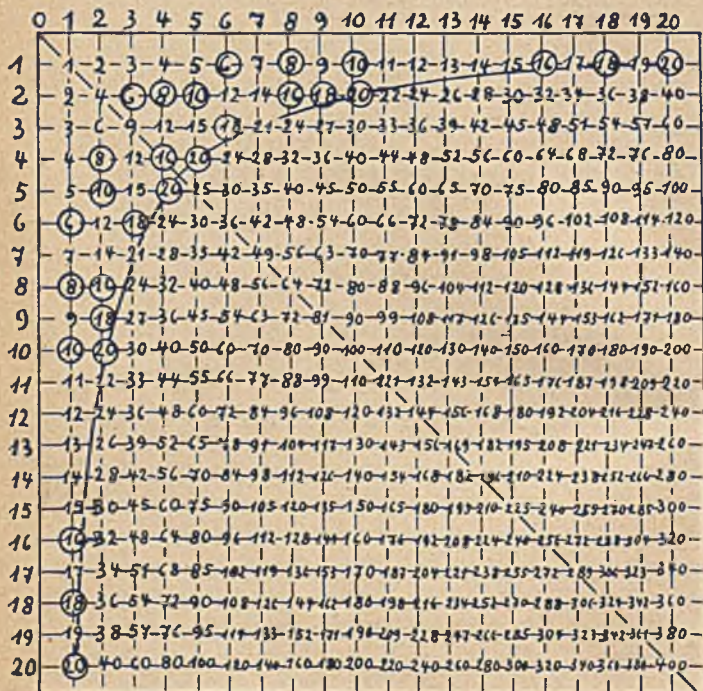 0 1 2 3 4 5 6 7 8 9 10 11 12 13 14 15 16 17 18 19 20
1 1 2 3 4 5 6 7 8 9 10 11 12 13 14 15 16 17 18 19 20
2 2 4 6 8 10 12 14 16 18 20 22 24 26 28 30 32 34 36 38 40
3 3 6 9 12 15 18 21 24 27 30 33 36 39 42 45 48 51 54 57 60
4 4 8 12 16 20 24 28 32 36 40 44 48 52 56 60 64 68 72 76 80
5 5 10 15 20 25 30 35 40 45 50 55 60 65 70 75 80 85 90 95 100
6 6 12 18 24 30 36 42 48 54 60 66 72 78 84 90 96 102 108 114 120
7 7 14 21 28 35 42 49 56 63 70 77 84 91 98 105 112 119 126 133 140
8 8 16 24 32 40 48 56 64 72 80 88 96 104 112 120 128 136 144 152 160
9 9 18 27 36 45 54 63 72 81 90 99 108 117 126 135 144 153 162 171 180
10 10 20 30 40 50 60 70 80 90 100 110 120 130 140 150 160 170 180 190 200
11 11 22 33 44 55 66 77 88 99 110 121 132 143 154 165 176 187 198 209 220
12 12 24 36 48 60 72 84 96 108 120 132 144 156 168 180 192 204 216 228 240
13 13 26 39 52 65 78 91 104 117 130 143 156 169 182 195 208 221 234 247 260
14 14 28 42 56 70 84 98 112 126 140 154 168 182 196 210 224 238 252 266 280
15 15 30 45 60 75 90 105 120 135 150 165 180 195 210 225 240 255 270 285 300
16 16 32 48 64 80 96 112 128 144 160 176 192 208 224 240 256 272 288 304 320
17 17 34 51 68 85 102 119 136 153 170 187 204 221 238 255 272 289 306 323 340
18 18 36 54 72 90 108 126 144 162 180 198 216 234 252 270 288 306 324 342 360
19 19 38 57 76 95 114 133 152 171 190 209 228 247 266 285 304 323 342 361 380
20 20 40 60 80 100 120 140 160 180 200 220 240 260 280 300 320 340 360 380 400